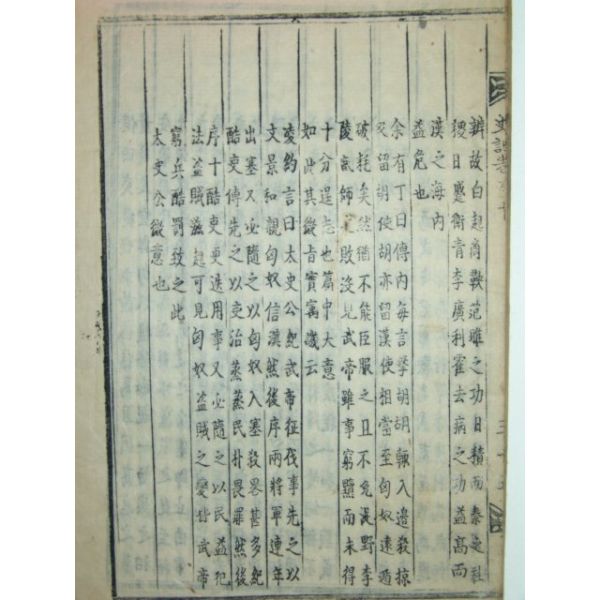 辨故白起爲戰范雎之功日積而秦之社
稷日蹙衛青李廣利霍去病之功益高而
漢之海內
益危也
余有丁曰傳內每言擊胡胡輙入邊殺掠
及留胡使胡亦留漢使相當至匈奴遠遁
破耗矣然猶不能臣服之且不免浞野李
陵貳師之敗沒見武帝雖事窮黷而未得
十分逞志也篇中大意
如此其微旨實寓譏云
凌約言曰太史公紀武帝征伐事先之以
文景和親匈奴信漢然後序兩將軍連年
出塞又必隨之以匈奴入塞殺畧甚多紀
酷吏傳先之以吏治蒸蒸民朴畏罪然後
序十酷吏更迭用事又必隨之以民益犯
法盜賊滋起可見匈奴盜賊之變皆武帝
窮兵酷罰致之此
太史公微意也